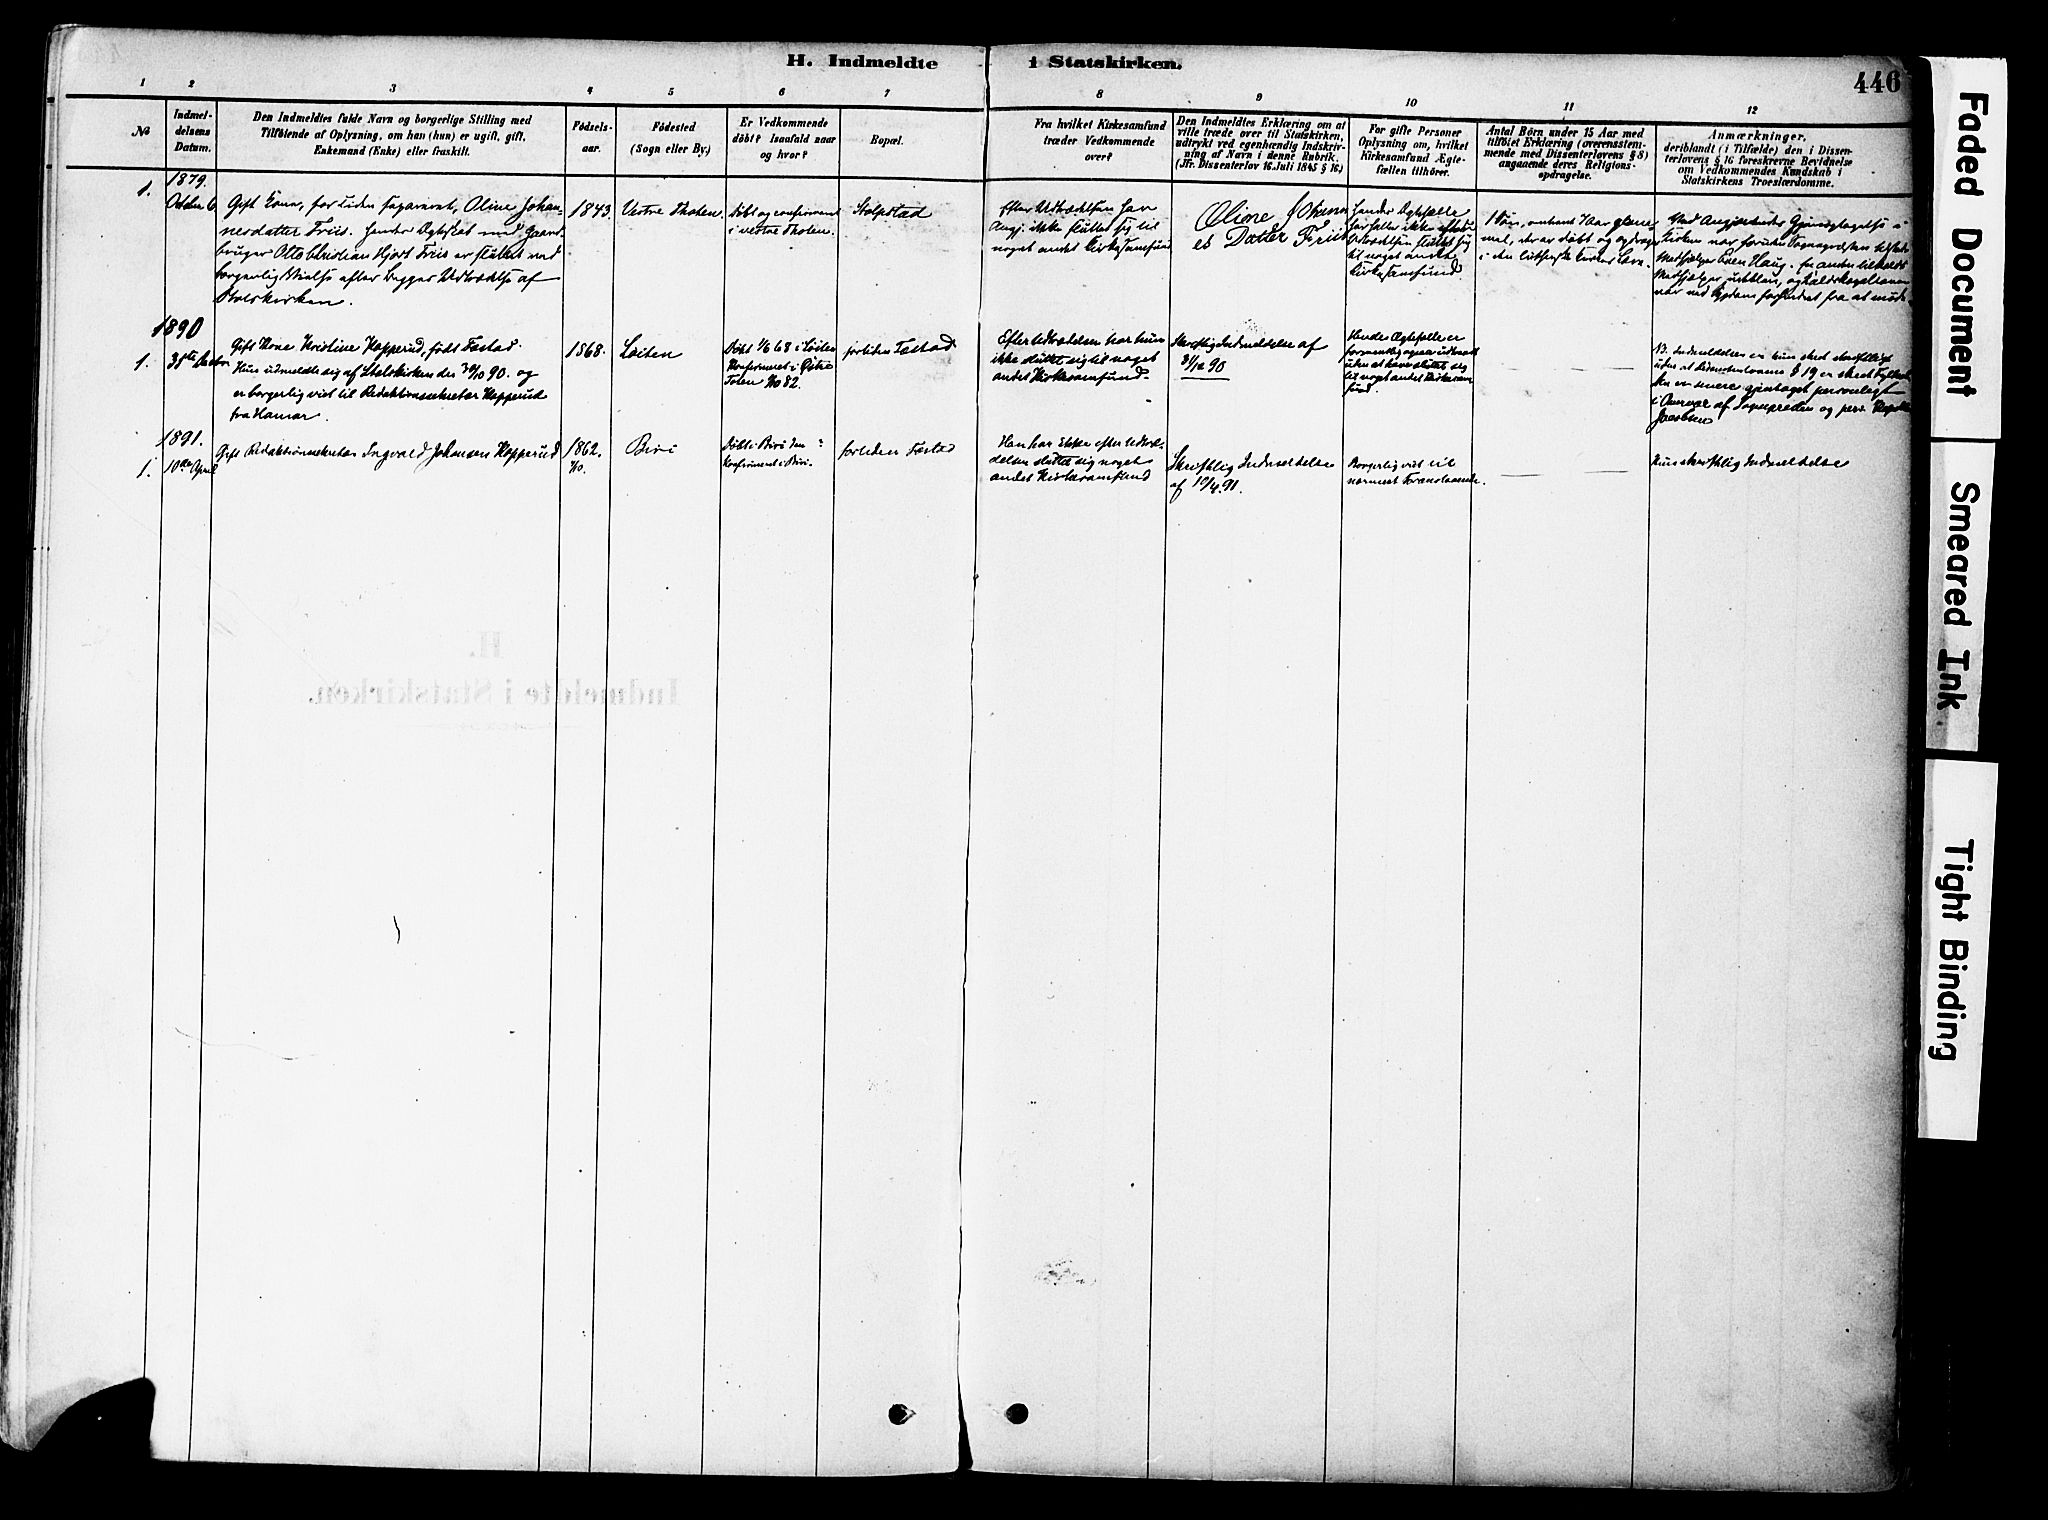 H. Indmeldte i Statskirken.
446
1 2 3 4 5 6 7 8 9 10 11 12
№
Indmel-
delsens
Datum.
Den Indmeldtes fulde Navn og borgerlige Stilling med
Tilföiende af Oplysning, om han (hun) er ugift, gift,
Enkemand (Enke) eller fraskilt.
Födsels-
aar.
Födested
(Sogn eller By.)
Er Vedkommende
döbt? Isaafald naar
og hvor?
Bopæl.
Fra hvilket Kirkesamfund
træder Vedkommende
over?
Den Indmeldtes Erklæring om at
ville træde over til Statskirken,
udtrykt ved egenhændig Indskriv-
ning af Navn i denne Rubrik.
(Jfr. Dissenterlov 16. Juli 1845 § 16.)
For gifte Personer
Oplysning om, hvilket
Kirkesamfund Ægte-
fællen tilhörer.
Antal Börn under 15 Aar med
tilföiet Erklæring (overensstem-
mende med Dissenterlovens § 8)
angaaende deres Religions-
opdragelse.
Anmærkninger,
deriblandt (i Tilfælde) den i Dissen-
terlovens § 16 foreskrevne Bevidnelse
om Vedkommendes Kundskab i
Statskirkens Troeslærdomme.
1879.
1.
October 6
Gift Kone, for tiden separeret, Oline Johan-
nesdatter Friis. Hendes Ægteskab med Gaard-
bruger Otto Christian Hjort Friis er sluttet ved
borgerlig Vielse efter begges Udtrædelse af
Statskirken.
1843.
Vestre Thoten.
Döbt og confirmeret
i vestre Thoten.
Stolpestad
Efter Udtrædelsen har
Ang. ikke sluttet sig til
noget andet Kirkesamfund
Oline Johann
es Datter Friis
Hendes Ægtefælle
har heller ikke efter
Udtrædelsen sluttet sig
til noget andet
Kirkesamfund
Kirken var foruden Sognepræsten tilstede
Medhjælper Even Haug.
1890
1.
Gift Kone Kristine Kopperud, født Fæstad.
Hun udmeldte sig af Statskirken den 30/10 90. og
er borgerlig viet til Redaktionssekretær Kopperud
fra Hamar.
1868.
Løiten
Døbt 1/6 68 i Løiten
Konfirmeret i Østre
Toten 82.
fortiden Fæstad
Efter Udtrædelsen har hun
ikke sluttet sig til noget
andet Kirkesamfund.
Skriftlig Indmeldelse af
31/12 90
Hendes Ægtefælle er
uden at have sluttet sig
til noget andet Kirkesam-
fund.
NB. Indmeldelsen er kun skeet skriftligt
uden at Dissenterlovens § 19 er skeet
den er senere gjentaget personligt
i Overvær af Sognepresten og
Jacobsen
1891.
1.
10de April
Gift Redaktionssekretær Ingvald Johansen Kopperud
1862.
Biri
Døbt i Biri den ?
Konfirmeret i Biri.
fortiden Fæstad
Han har ikke efter Udtræ-
delsen sluttet sig noget
andet Kirkesamfund
Skriftlig Indmeldelse
af 10/4 91.
Borgerlig viet til
nærmest Foranstaaende.
Kun skriftlig Indmeldelse
H.
Indmeldte i Statskirken.
Faded Document
Smeared Ink
Tight Binding